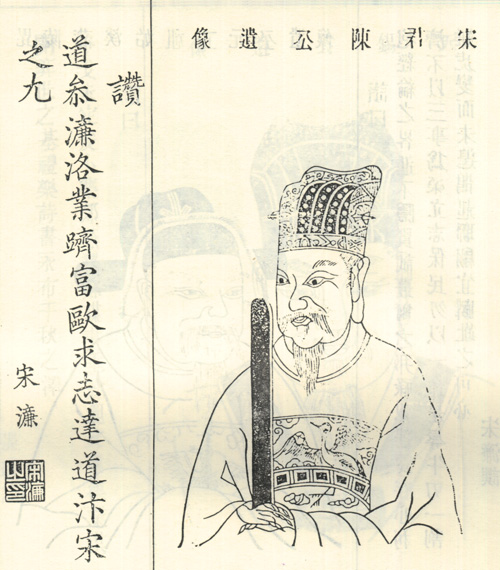 宋君陳公遺像
讚
道叅濂洛業躋富歐求志達道汴宋
之尤
宋濂
宋濂之印